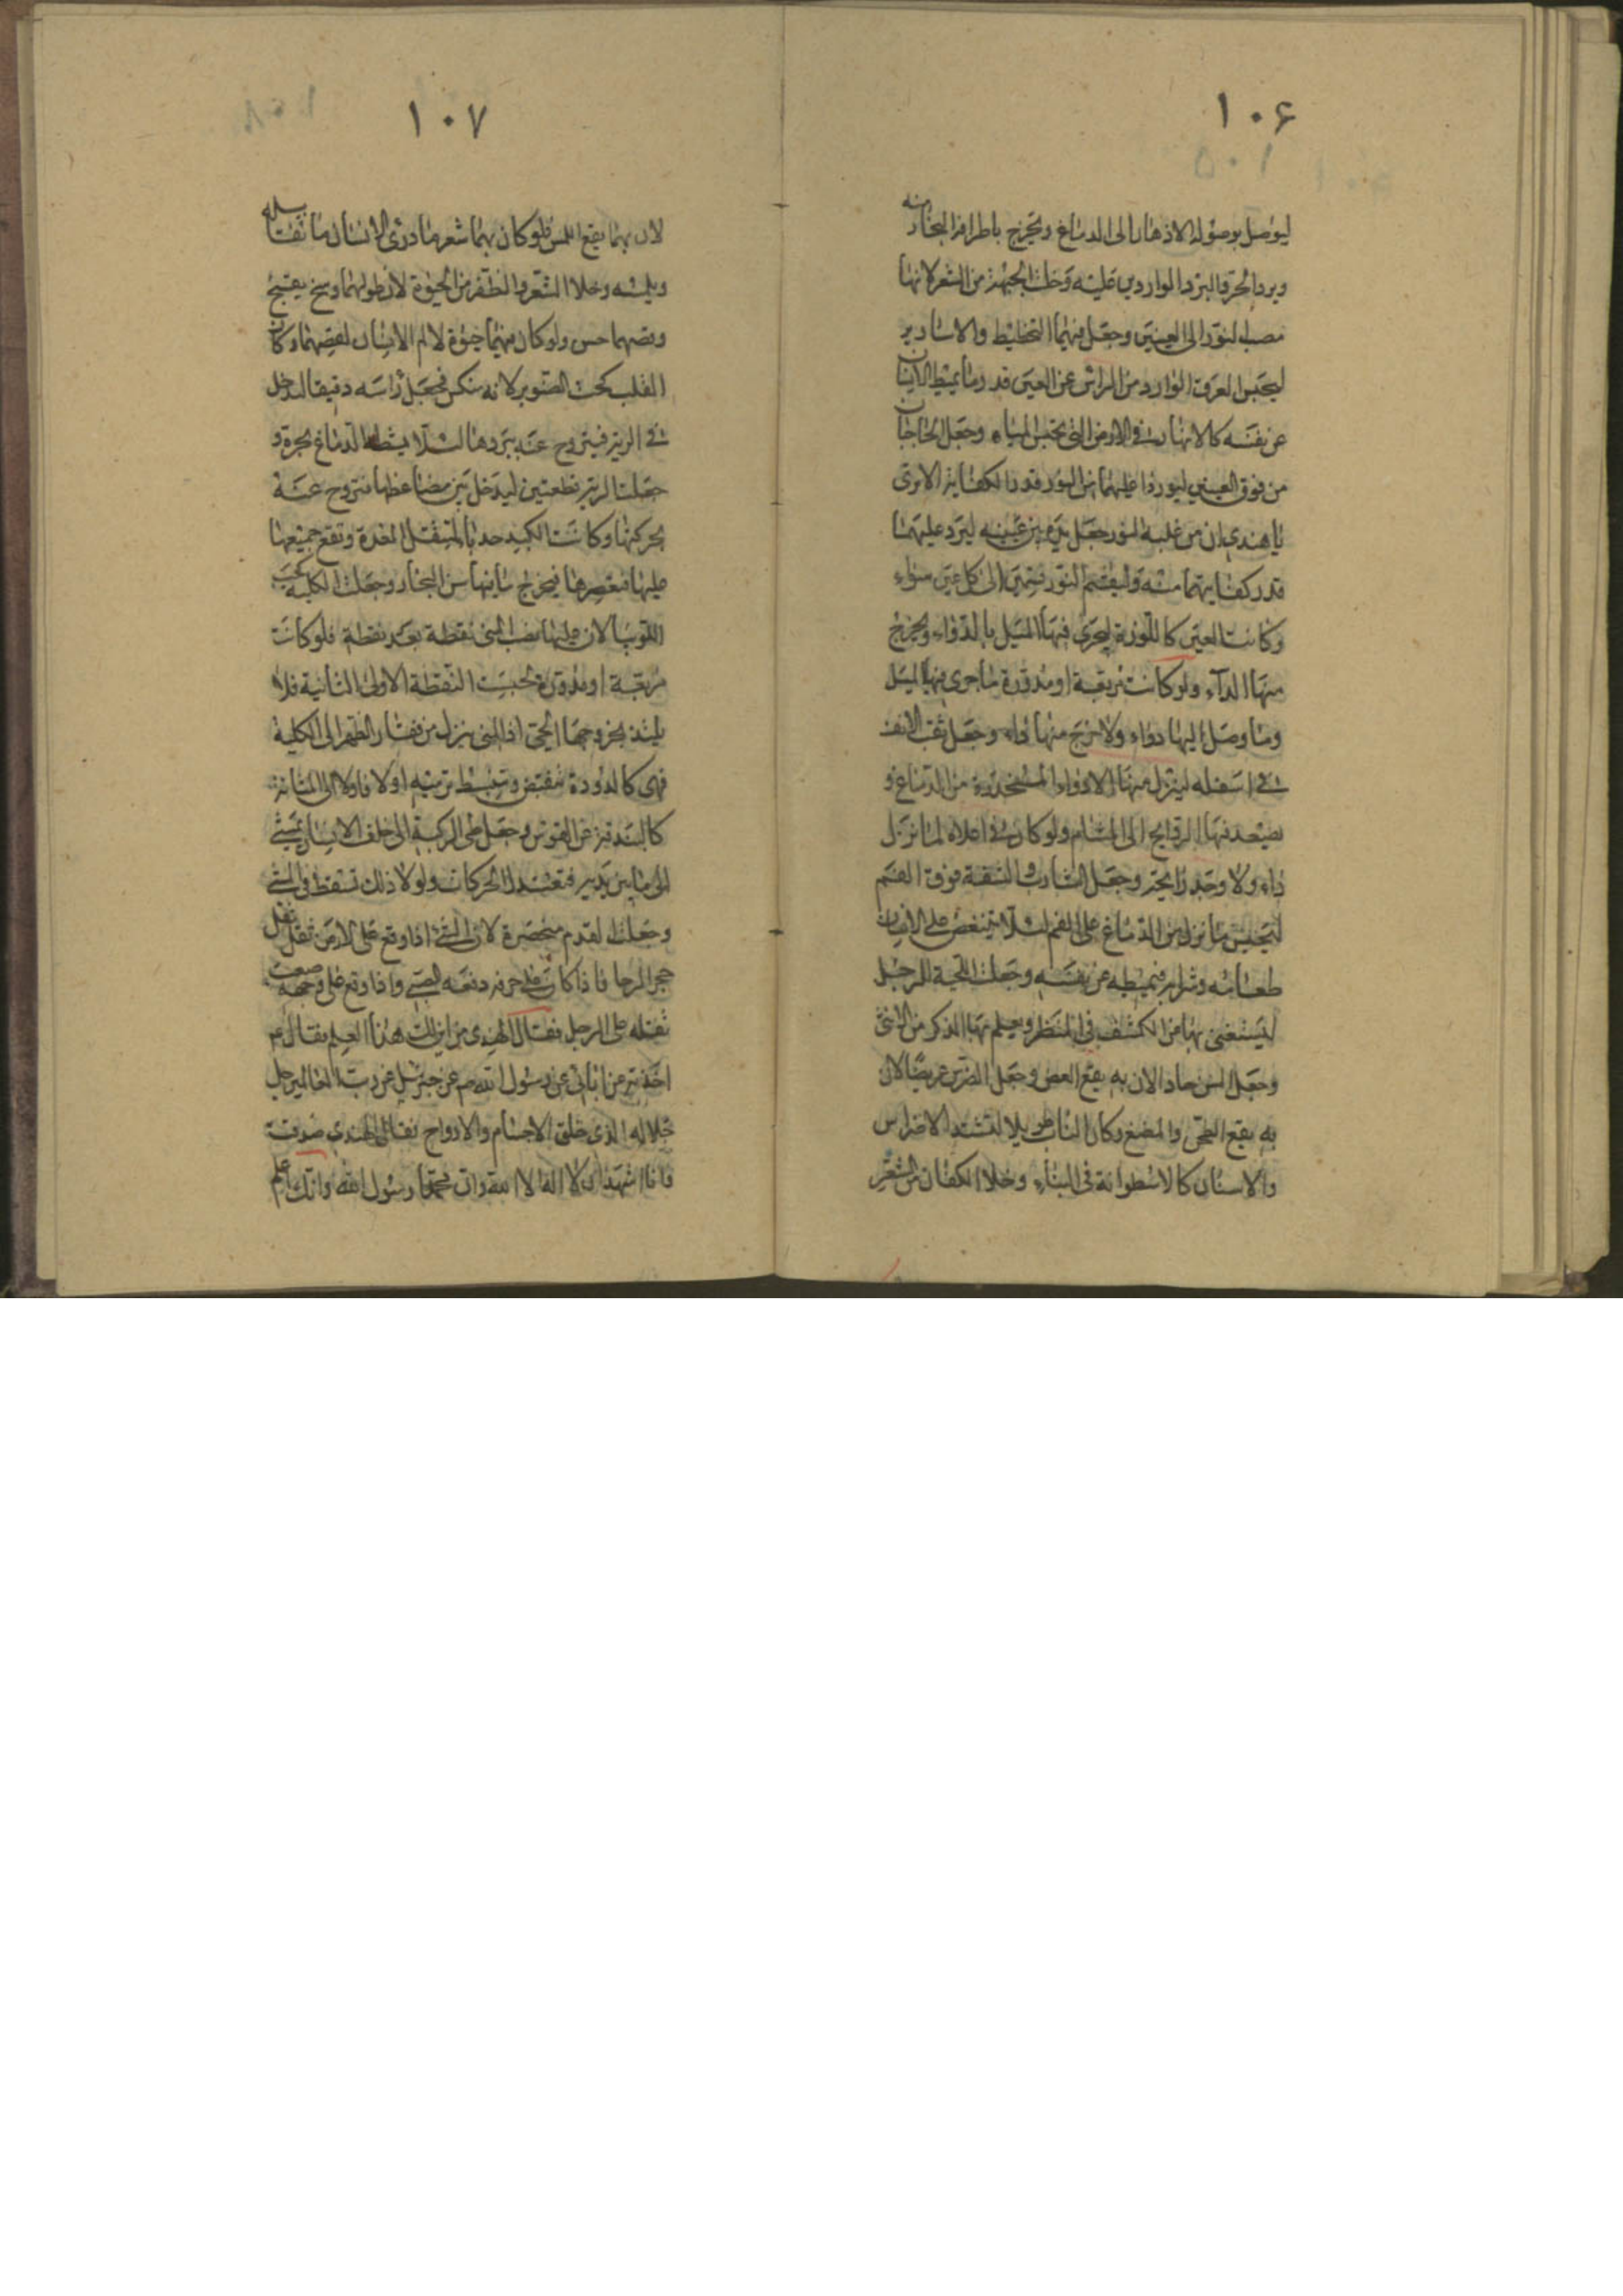 ۱۰۶
ليوصل بوصوله الادهان الى الدماغ ويخرج باطرافه البخار منه
ويرد الحر والبرد الواردين عليه وخلت الجبهة من الشعر لانها
مصب النور الى العينين وجعل فيهما التخطيط والاسارير
ليحتبس العرق الوارد من الراس عن العين قدر ما يميطه الانسان
عن نفسه كالانهار في الارض التي تحبس المياه وجعل الحاجبان
من فوق العينين ليوردا عليهما من النور قدر الكفاية الا ترى
يا هندي ان من غلبه النور جعل يده بين عينيه ليرد عليهما
قدر كفايتهما منه وليقسم النور قسمين الى كل عين سواء
وكانت العين كاللوزة ليجرى فيها الميل بالدواء ويخرج
منها الداء ولو كانت مربعة او مدورة ما جرى فيها الميل
وما وصل اليها دواء ولا خرج منها داء وجعل ثقب الانف
في اسفله لينزل منها الادواء المنحدرة من الدماغ و
يصعد فيها الروايح الى المشام ولو كان في اعلاه لما نزل
داء ولا وجد رايحة وجعل الشارب الشفة فوق الفم
لتحبس ما نزل من الدماغ على الفم لئلا يتنغص على الانسان
طعامه وشرابه فيميطه عن نفسه وجعلت اللحية للرجل
ليستغنى بها من الكشف في المنظر ويعلم بها الذكر من الانثى
وجعل السن حادا لان به يقع العض وجعل الضرس عريضا لان
به يقع الطحن والمضغ وكان الناب طويلا لتشتد الاضراس
والاسنان كالاسطوانة في البناء وخلا الكفان من الشعر
۱۰۷
لان بهما يقع اللمس فلو كان بهما شعر ما درى الانسان ما يقابله
ويلمسه وخلا الشعر والظفر من الحيوة لان طولهما وسخ يقبح
وقصهما حسن ولو كان فيهما حيوة لالم الانسان لقصهما وكان
القلب كحب الصنوبر لانه منكس فجعل راسه دقيقا ليدخل
في الرية فيتروح عنه ببردها لئلا يشيط الدماغ بحره و
جعلت الرية قطعتين ليدخل بين مضاغطها فتروح عنه
بحركتها وكانت الكبد حدباء لتثقل المعدة وتقع جميعها
عليها فتعصرها فيخرج ما فيها من البخار وجعلت الكلية كحب
اللوبيا لان عليها مصب المنى نقطة بعد نقطة فلو كانت
مربعة او مدورة لحبست النقطة الاولى الثانية فلا
يلتذ بخروجها الحى اذ المنى ينزل من فقار الظهر الى الكلية
فهى كالدودة تنقبض وتنبسط ترميه اولا فاولا الى المثانة
كالبندقة عن القوس وجعل طى الركبة الى خلف لان الانسان يمشى
الى ما بين يديه فتعتدل الحركات ولولا ذلك لسقط في المشى
وجعلت القدم متخصرة لان الشئ اذا وقع على الارض ثقل ثقل
حجر الرحا فاذا كان على حرفه دفعه الصبى واذا وقع على وجهه صعب
ثقله على الرجل فقال الهندى من اين لك هذا العلم فقال ع
اخذته عن ابائى عن رسول الله ص عن جبرئيل عن رب العالمين جل
جلاله الذى خلق الاجسام والارواح فقال الهندى صدقت
فانا اشهد ان لا اله الا الله وان محمدا رسول الله وانك اعلم